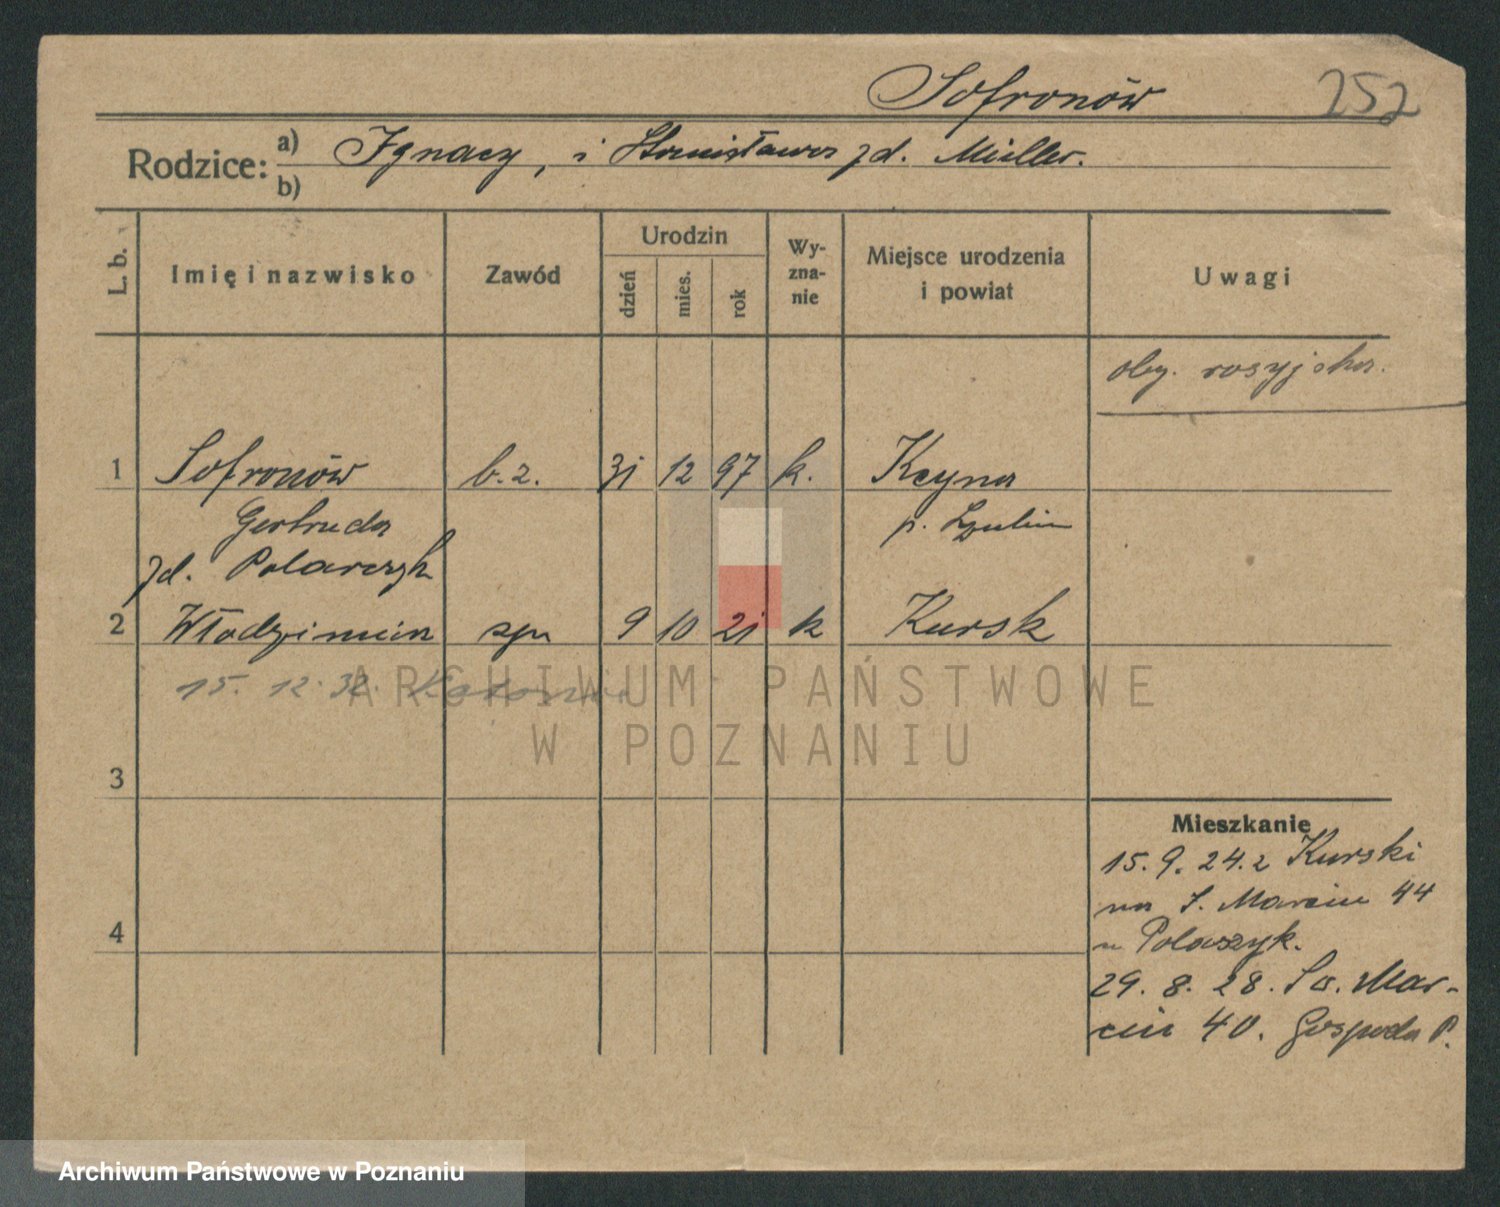 Sofronów 252
Rodzice: a) Ignacy, i Stanisława zd. Müller.
b)
L. b. Imię i nazwisko Zawód Urodzin dzień mies. rok Wy-zna-nie Miejsce urodzenia i powiat Uwagi
oby. rosyjska.
1 Sofronów b. z. 31 12 97 k. Kcyna
Gertruda p. Szubin
zd. Polarczyk
2 Włodzimierz syn 9 10 21 k Kursk
15. 12. 32.
ARCHIWUM PAŃSTWOWE
W POZNANIU
3
Mieszkanie
15. 9. 24. z Kurski
na S. Marcin 44
u Polaszyk.
4
29. 8. 28. Św. Mar-
cin 40. Gospoda P.
Archiwum Państwowe w Poznaniu